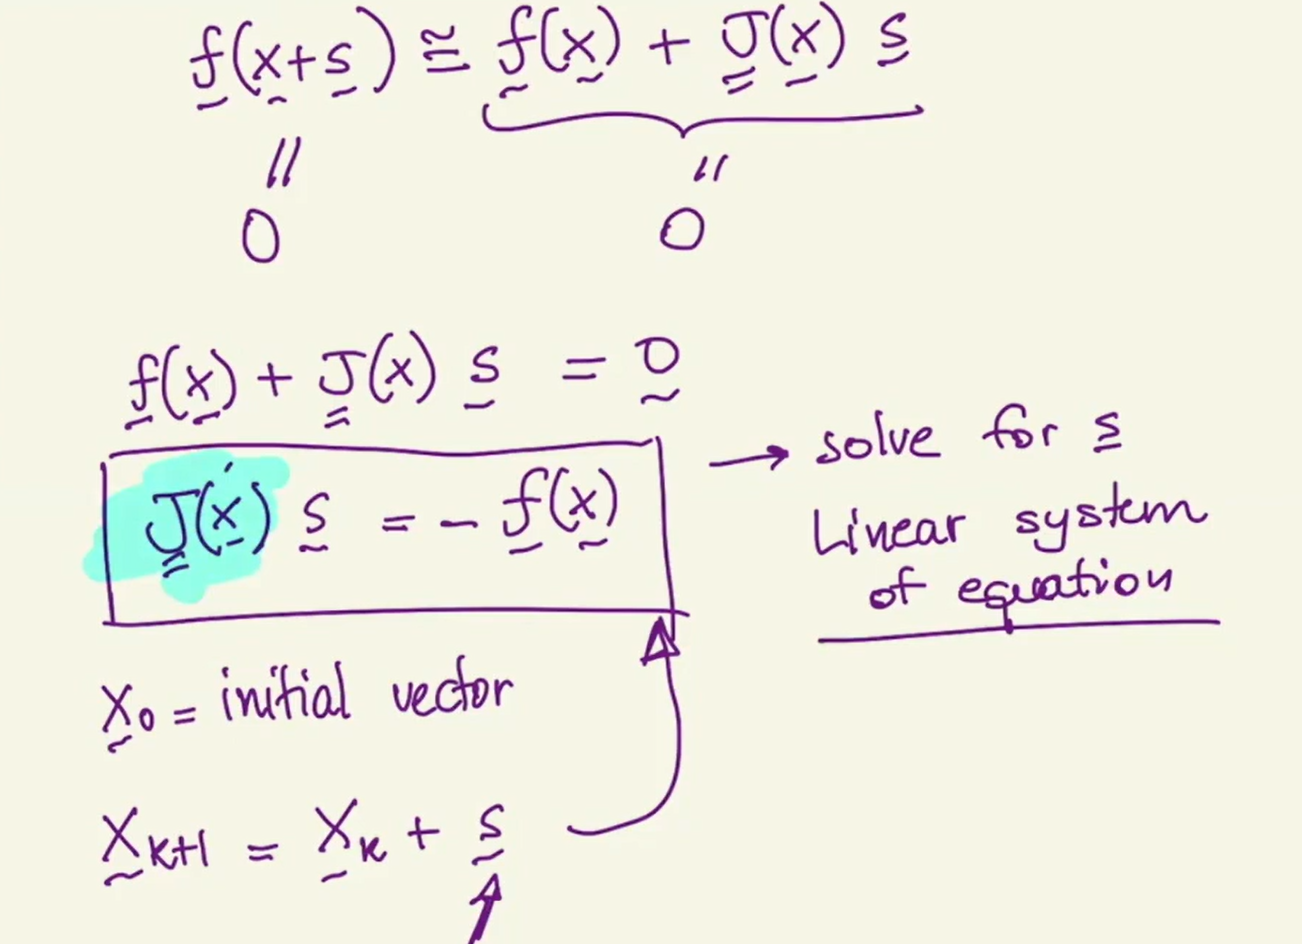 f(x+s) ≅ f(x) + J(x) s
= =
0 0
f(x) + J(x) s = 0
J(x) s = - f(x)
→ solve for s
Linear system
of equation
x₀ = initial vector
xₖ₊₁ = xₖ + s